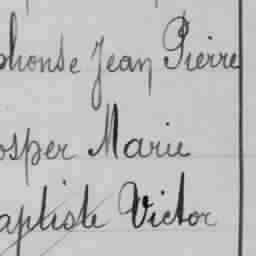 phonse Jean Pierre
osper Marie
aptiste Victor